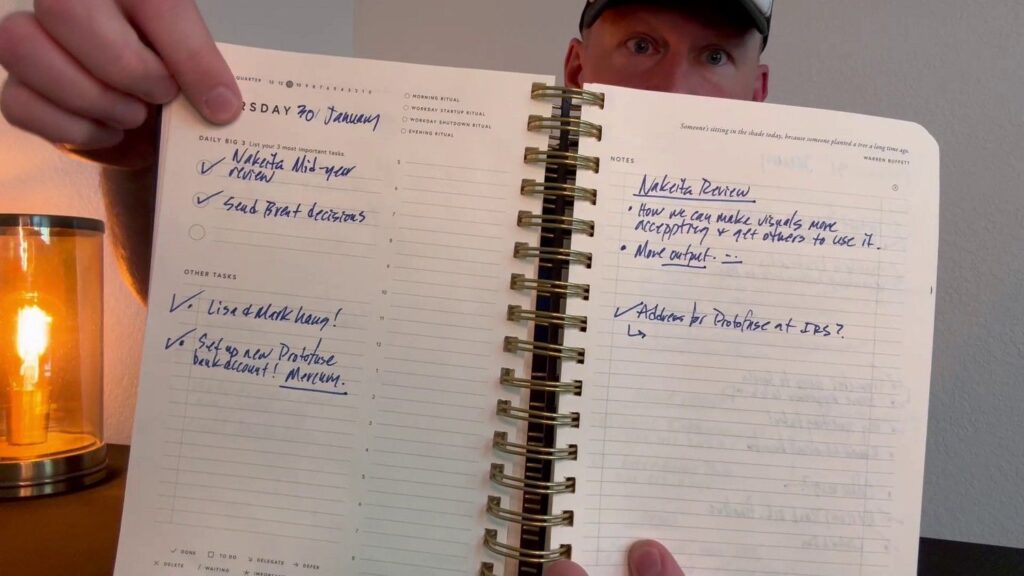 QUARTER 13 12 11 10 9 8 7 6 5 4 3 2 1 0
RSDAY 30 January
DAILY BIG 3 List your 3 most important tasks.
Nakeita Mid-year
review
Send Brent decisions
OTHER TASKS
Lisa & Mark hang!
Set up new Protofuse
bank account! Mercury.
✓ DONE □ TO DO DELEGATE → DEFER
✕ DELETE / WAITING ★ IMPORTANT
MORNING RITUAL
WORKDAY STARTUP RITUAL
WORKDAY SHUTDOWN RITUAL
EVENING RITUAL
5
6
7
8
9
10
11
12
1
2
3
4
5
6
7
8
Someone's sitting in the shade today, because someone planted a tree a long time ago.
WARREN BUFFETT
NOTES
Nakeita Review
• How we can make visuals more
accepting & get others to use it.
• More output.
✓ Address for Protofuse at IRS?